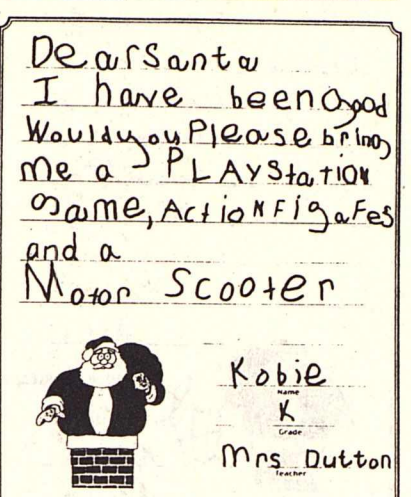 Dear Santa
I have been good
Would you Please bring
me a PLAYStaTION
game, ActioN FigaFes
and a
Motor Scooter
Kobie
Name
K
Grade
Mrs Dutton
Teacher